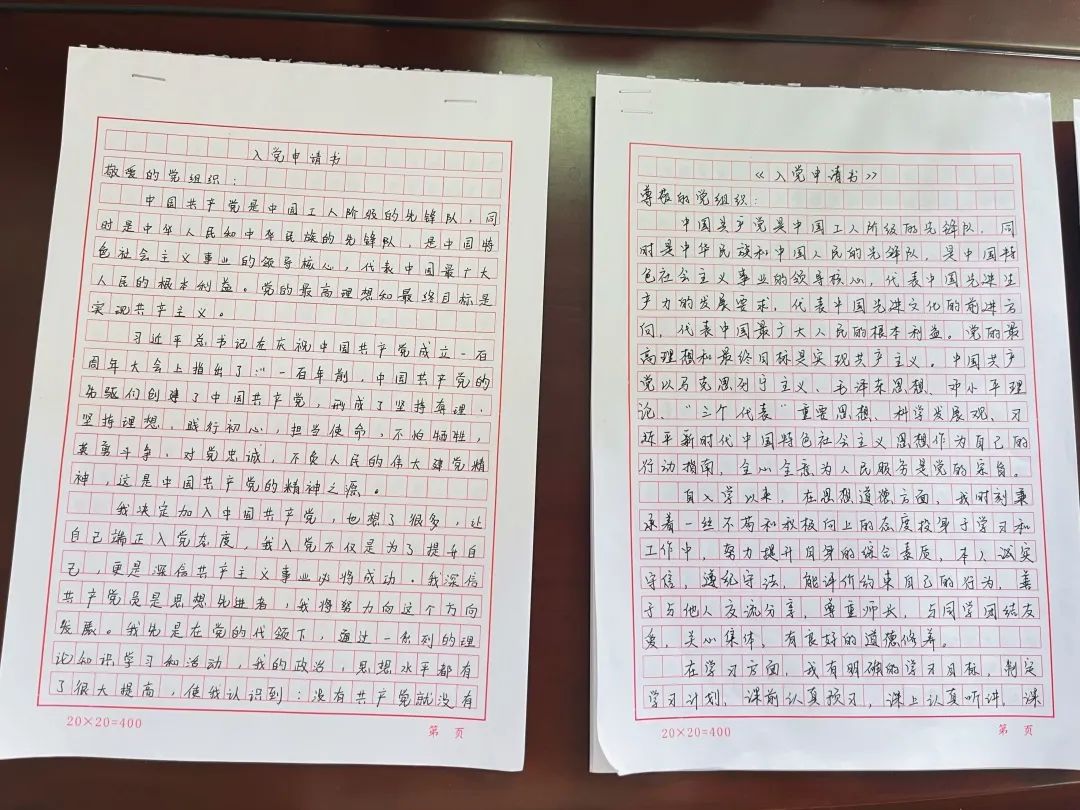 入党申请书
敬爱的党组织：
中国共产党是中国工人阶级的先锋队，同
时是中华人民和中华民族的先锋队，是中国特
色社会主义事业的领导核心，代表中国最广大
人民的根本利益。党的最高理想和最终目标是
实现共产主义。
习近平总书记在庆祝中国共产党成立一百
周年大会上指出了：“一百年前，中国共产党的
先驱们创建了中国共产党，形成了坚持真理、
坚持理想，践行初心，担当使命，不怕牺牲，
英勇斗争，对党忠诚，不负人民的伟大建党精
神，这是中国共产党的精神之源。
我决定加入中国共产党，也想了很多，让
自己端正入党态度，我入党不仅是为了提升自
己，更是深信共产主义事业必将成功。我深信
共产党员是思想先进者，我将努力向这个方向
发展。我先是在党的代领下，通过一系列的理
论知识学习和活动，我的政治，思想水平都有
了很大提高，使我认识到：没有共产党就没有
20×20=400
第 页
《入党申请书》
尊敬的党组织：
中国共产党是中国工人阶级的先锋队，同
时是中华民族和中国人民的先锋队，是中国特
色社会主义事业的领导核心，代表中国先进生
产力的发展要求，代表中国先进文化的前进方
向，代表中国最广大人民的根本利益。党的最
高理想和最终目标是实现共产主义。中国共产
党以马克思列宁主义、毛泽东思想、邓小平理
论、“三个代表”重要思想、科学发展观、习
近平新时代中国特色社会主义思想作为自己的
行动指南，全心全意为人民服务是党的宗旨。
自入学以来，在思想道德方面，我时刻秉
承着一丝不苟和积极向上的态度投身于学习和
工作中，努力提升自身的综合素质，本人诚实
守信，遵纪守法，能评价约束自己的行为，善
于与他人交流分享，尊重师长，与同学团结友
爱，关心集体，有良好的道德修养。
在学习方面，我有明确的学习目标，制定
学习计划，课前认真预习，课上认真听讲，课
20×20=400
第 页